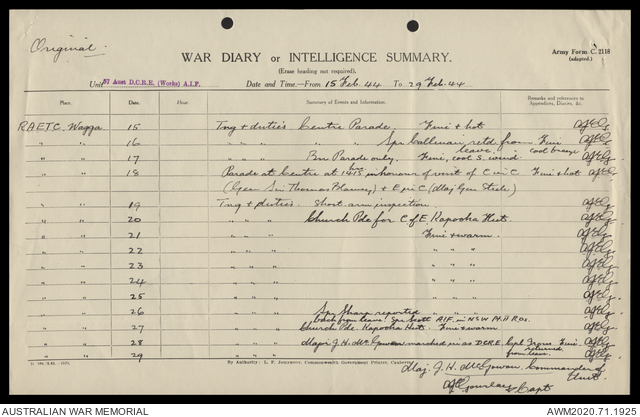 Original.
WAR DIARY or INTELLIGENCE SUMMARY.
(Erase heading not required).
Army Form C. 2118
(adapted.)
Unit 57 Aust D.C.R.E. (Works) A.I.F.
Date and Time—From 15 Feb. 44 To 29 Feb. 44
Place. Date. Hour. Summary of Events and Information. Remarks and references to Appendices, Diaries, &c.
R.A.E.T.C. Wagga 15 Tng & duties. Centre Parade. Fine & hot
" " 16 " " " Spr Callinan retd. from leave. Fine cool breeze
" " 17 " " " Bn Parade only. Fine, cool S. wind
" " 18 Parade at Centre at in honour of visit of C in C Fine & hot
(Gen Sir Thomas Blamey) & E in C (Maj Gen Steele)
" " 19 Tng & duties. Short arm inspection.
" " 20 " " " Church Pde for C of E Kapooka Huts.
" " 21 " " " Fine & warm.
" " 22 " " " " " "
" " 23 " " " " " "
" " 24 " " " " " "
" " 25 " " " " " "
" " 26 " " " Spr Sharp reported
back from leave. Spr Scott A.I.F. in N.S.W.
" " 27 " " " Church Pde. Kapooka Huts. Fine & warm
" " 28 " " " Major J. H. McGowan marched in as D.C.R.E. Capt returned from leave. Fine.
" " 29 " " "
By Authority: L. F. Johnston, Commonwealth Government Printer, Canberra.
Maj. J. H. McGowan Commander of
Unit.
Capt
AUSTRALIAN WAR MEMORIAL
AWM2020.71.1925